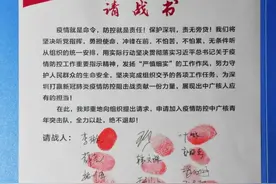 请战书
疫情就是命令，防控就是责任！保护深圳，责无旁贷！我们将
坚决听党指挥，勇担使命，冲锋在前，不怕苦，不怕累，无条件听
从组织的统一安排，用实际行动坚决贯彻落实习近平总书记关于疫情
防控工作重要指示精神，发扬“严慎细实”的工作作风，努力守
护人民群众的生命安全，坚决完成组织交予的各项工作任务，为深
圳打赢新冠肺炎疫情防控阻击战贡献一份力量，展现出中广核人应
有的担当！
在此，我郑重地向组织提出请求，申请加入疫情防控中广核青
年突击队，全力以赴，绝不后退！
请战人：